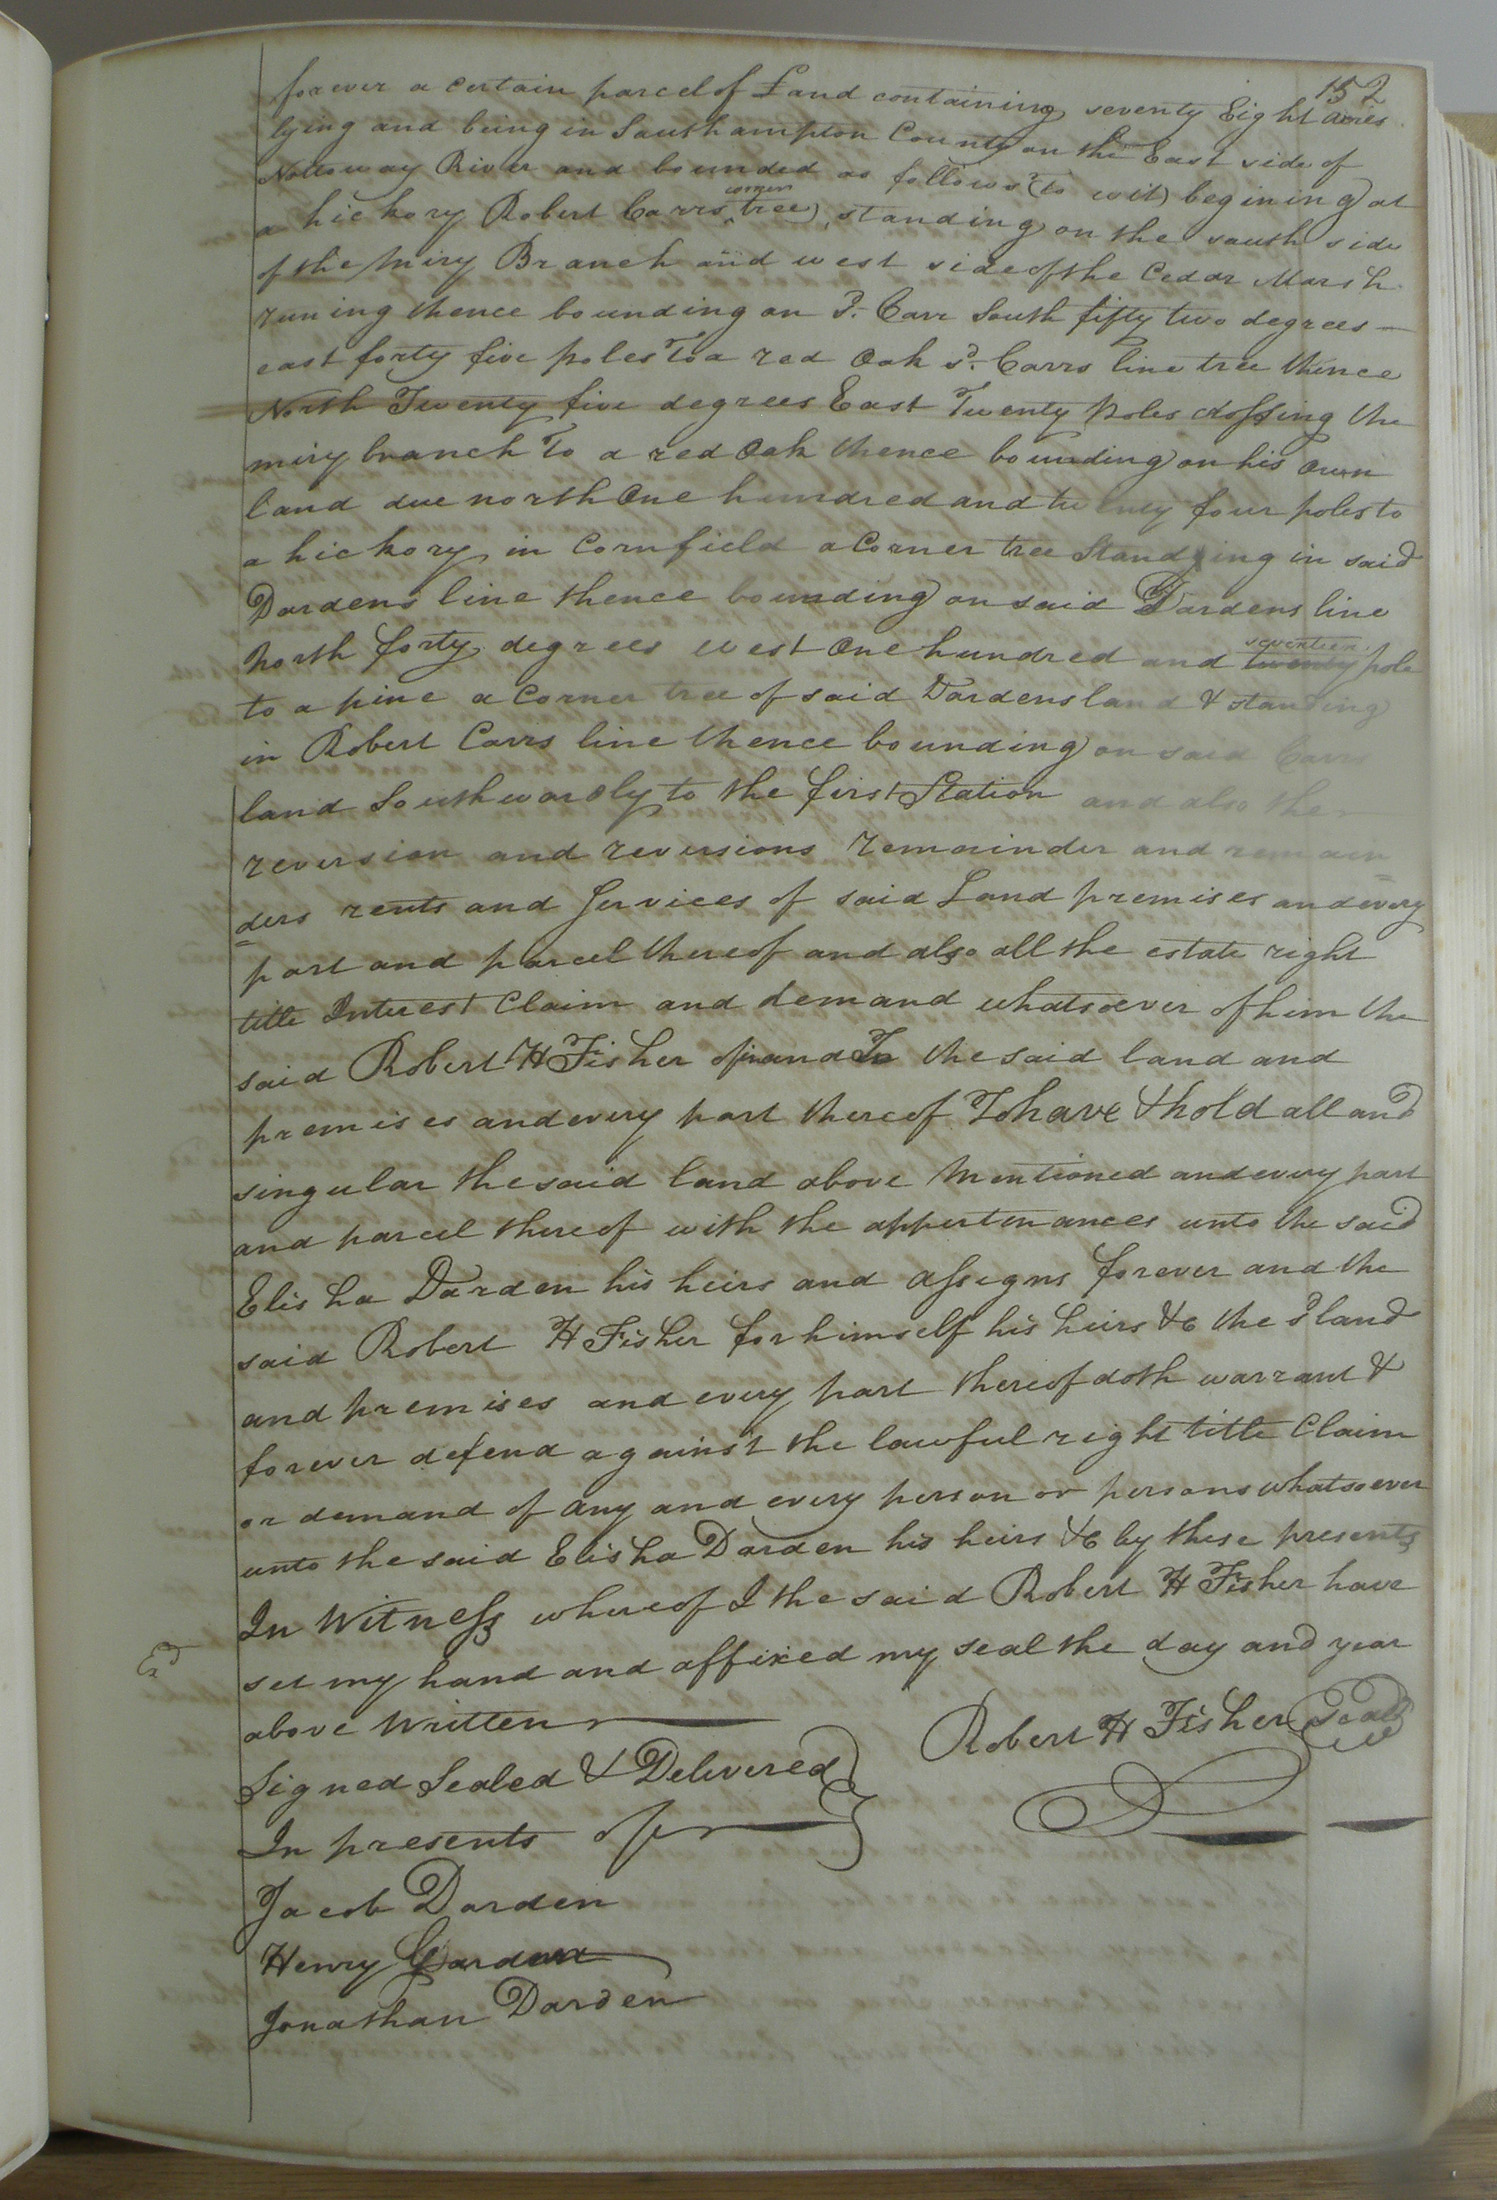 152
forever a certain parcel of Land containing seventy Eight acres
lying and being in Southampton County on the East side of
Nottoway River and bounded as follows (to wit) begining at
a hickory Robert Carrs corner tree, standing on the south side
of the miry Branch and west side of the Cedar Marsh
runing thence bounding on sd. Carr South fifty two degrees —
east forty five poles To a red Oak sd. Carrs line tree thence
North Twenty five degrees East Twenty poles crossing the
miry branch To a red Oak thence bounding on his own
land due north One hundred and twenty four poles to
a hickory in Cornfield a Corner tree Standing in said
Dardens line thence bounding on said Dardens line
North forty degrees west One hundred and seventeen twenty pole
to a pine a Corner tree of said Dardens land & standing
in Robert Carrs line thence bounding on said Carrs
land Southwardly to the first Station and also the
reversion and reversions remainder and remain
=ders rents and Services of said Land premises and every
part and parcel thereof and also all the estate right
title Interest Claim and demand whatsoever of him the
said Robert H Fisher of in and To the said land and
premises and every part thereof To have & hold all and
singular the said land above Mentioned and every part
and parcel thereof with the appertenances unto the said
Elisha Darden his heirs and assigns forever and the
said Robert H Fisher for himself his heirs &c the sd land
and premises and every part thereof doth warrant &
forever defend against the lawful right title Claim
or demand of any and every person or persons whatsoever
unto the said Elisha Darden his heirs &c by these presents
In Witness whereof I the said Robert H Fisher have
Ed
set my hand and affixed my seal the day and year
above Written
Robert H Fisher Seal
Signed Sealed & Delivered
In presents of
Jacob Darden
Henry Darden
Jonathan Darden